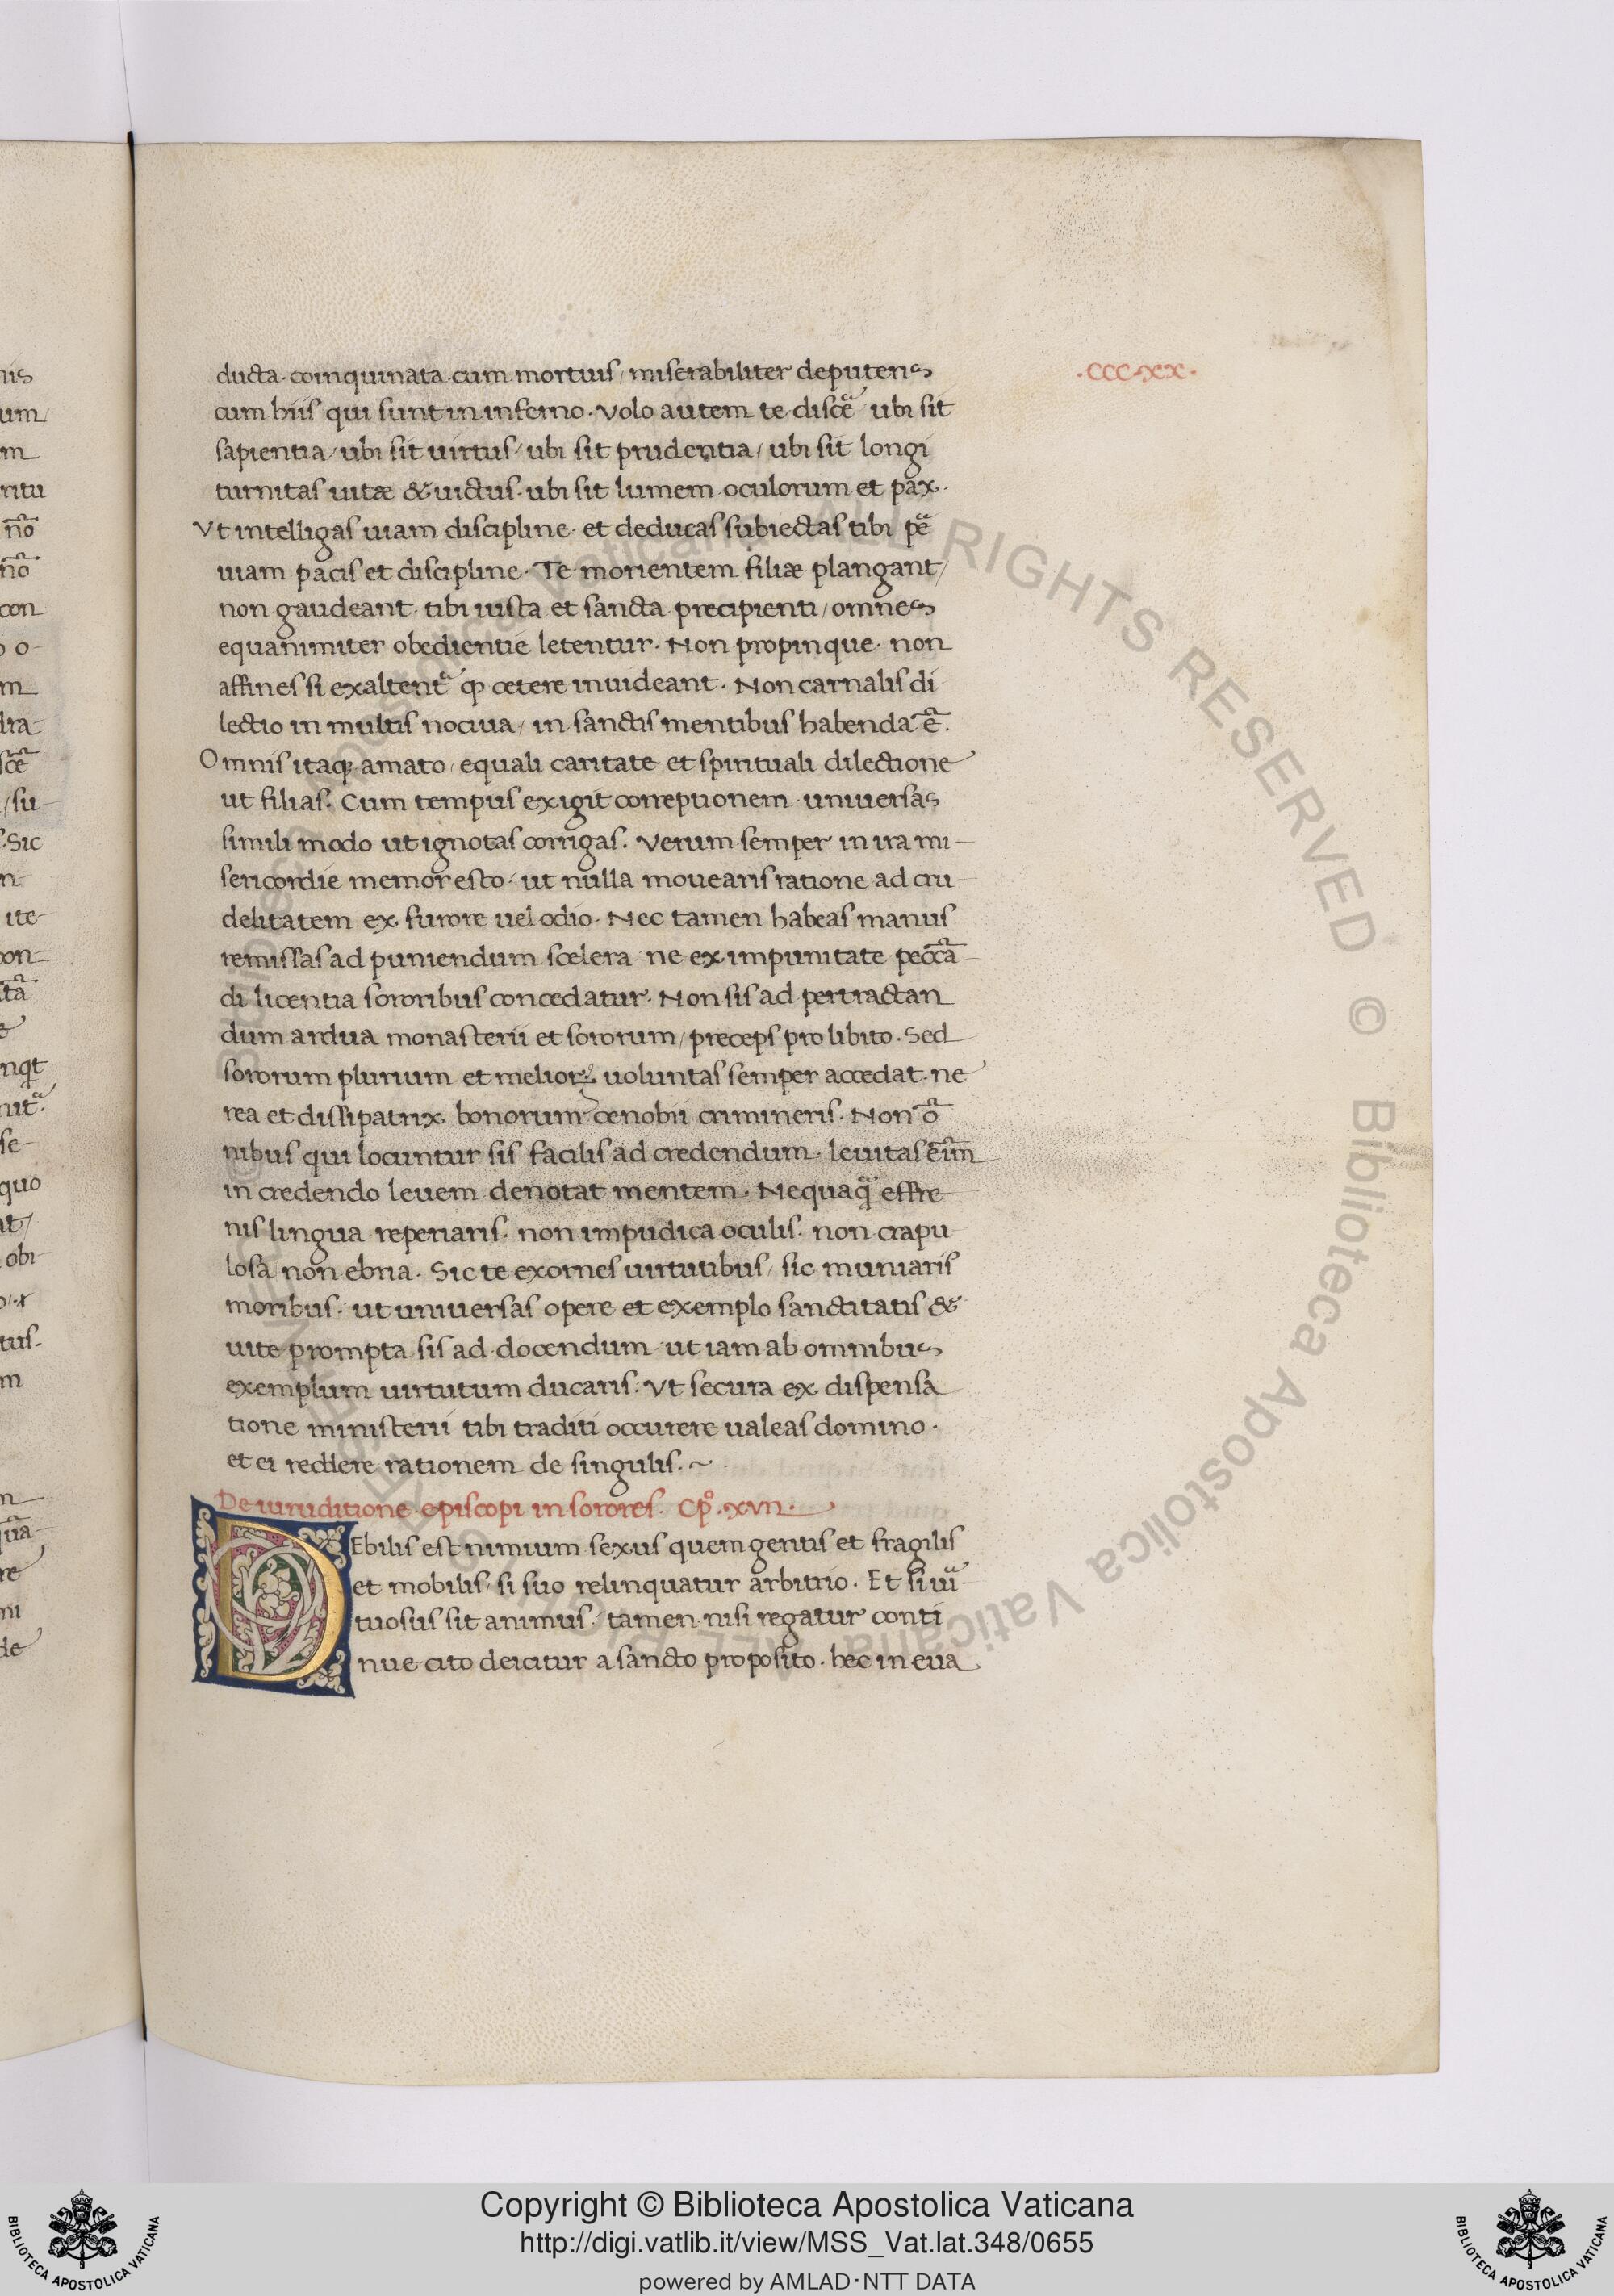 ducta. coinquinata cum mortuis / miserabiliter deputeris
·CCC·XX·
cum hiis qui sunt in inferno. Volo autem te discẽ ubi sit
sapientia / ubi sit uirtus / ubi sit prudentia / ubi sit longi
turnitas uitæ & uictus. ubi sit lumem oculorum et pax.
Vt intelligas uiam discipline. et deducas subiectas tibi pẽ
uiam pacis et discipline. Te morientem filiæ plangant /
non gaudeant. tibi iusta et sancta precipienti / omnes
equanimiter obedientie letentur. Non propinque. non
affines si exaltent᷑ ꝙ cetere inuideant. Non carnalis di
lectio in multis nociua / in sanctis mentibus habenda ẽ.
Omnis itaqꝫ amato / equali caritate et spirituali dilectione
ut filias. Cum tempus exigit correptionem uniuersas
simili modo ut ignotas corrigas. Verum semper in ira mi-
sericordie memor esto. ut nulla mouearis ratione ad cru-
delitatem ex furore uel odio. Nec tamen habeas manus
remissas ad puniendum scelera ne ex impunitate peccã-
di licentia sororibus concedatur. Non sis ad pertractan
dum ardua monasterii et sororum / preceps pro libito. Sed
sororum plurium et melioꝝ uoluntas semper accedat. ne
rea et dissipatrix bonorum cenobii crimineris. Non õ
nibus qui locuntur sis facilis ad credendum. leuitas eĩm
in credendo leuem denotat mentem. Nequaq̃ effre
nis lingua reperiaris. non impudica oculis. non crapu
losa non ebria. Sic te exornes uirtutibus / sic muniaris
moribus. ut uniuersas opere et exemplo sanctitatis &
uite prompta sis ad docendum ut iam ab omnibus
exemplum uirtutum ducaris. Vt secura ex dispensa
tione ministerii tibi traditi occurere ualeas domino.
et ei reddere rationem de singulis. ~
De uiruditione episcopi in sorores. Cpº. xvii.
DEbilis est nimium sexus quem gentis et fragilis
et mobilis / si suo relinquatur arbitrio. Et si uĩ
tuosus sit animus / tamen nisi regatur conti
nue cito deicitur a sancto proposito. hec in eua
ALL RIGHTS RESERVED © Biblioteca Apostolica Vaticana
Copyright © Biblioteca Apostolica Vaticana
http://digi.vatlib.it/view/MSS_Vat.lat.348/0655
powered by AMLAD·NTT DATA
BIBLIOTECA APOSTOLICA VATICANA
BIBLIOTECA APOSTOLICA VATICANA